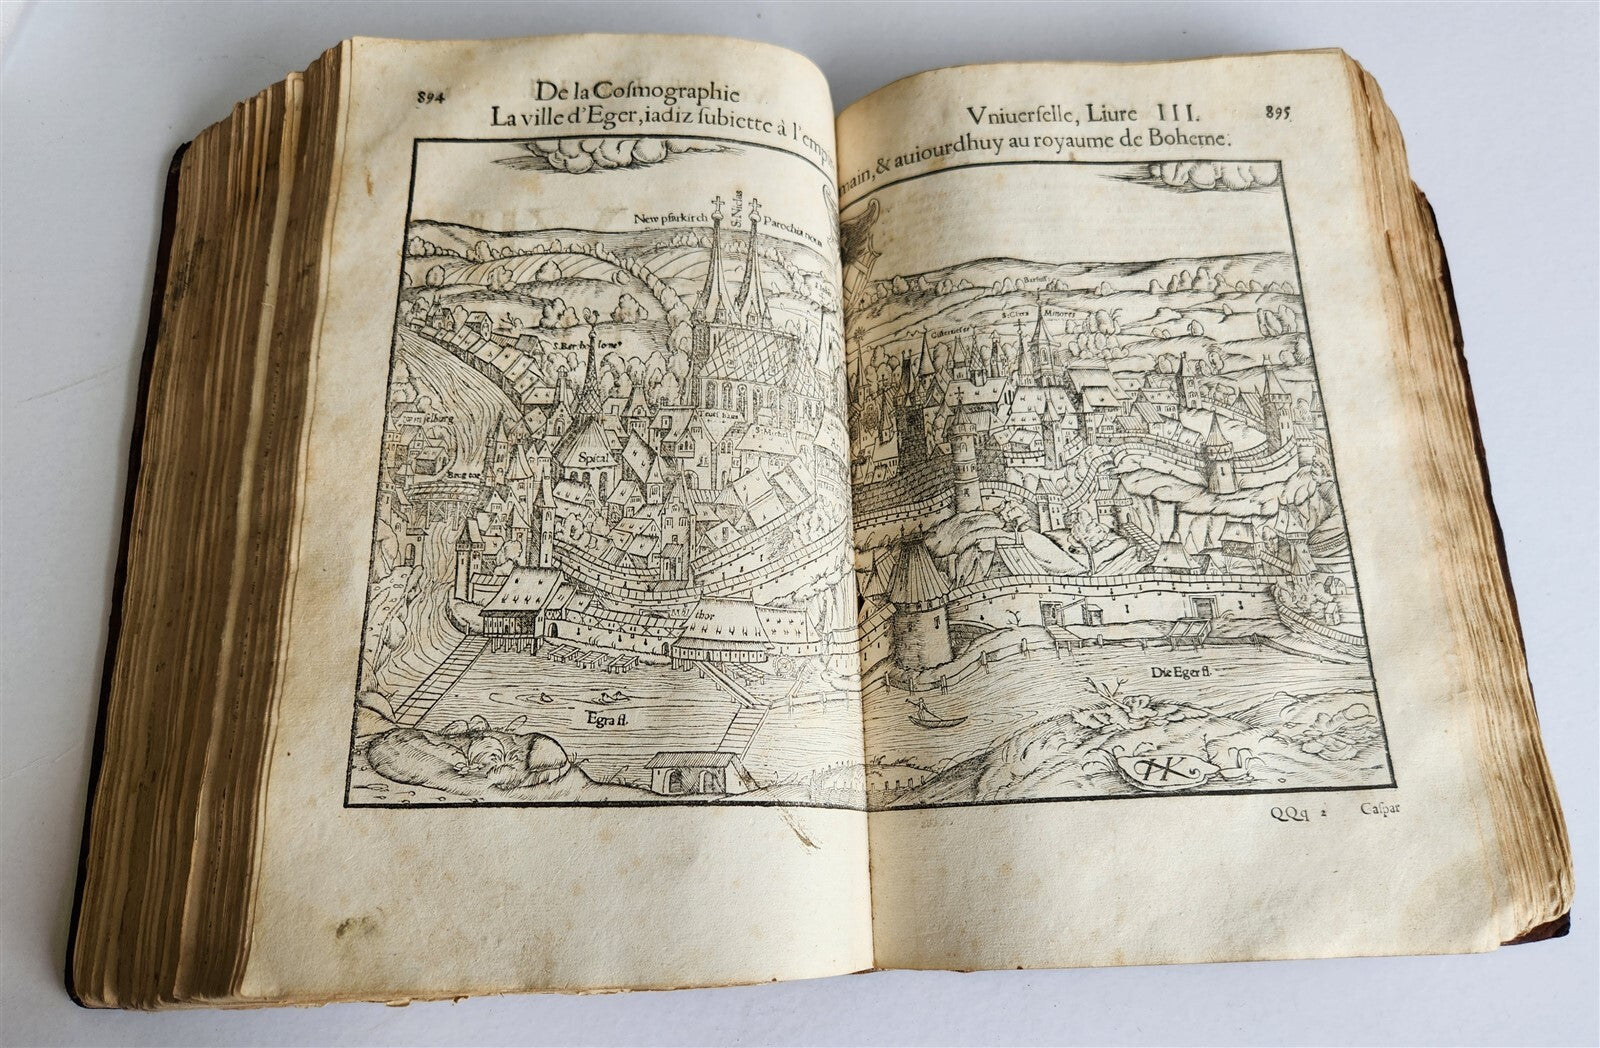 894
De la Cosmographie
La ville d'Eger, iadiz subiette à l'empi
Vniuerselle, Liure III.
895
main, & auiourdhuy au royaume de Boheme.
New pfarkirch
S. Niclas
Parochia noua
S. Bar tho lome⁹
Spital
thor
Egra fl.
S. Clara
Minores
Die Eger fl.
QQq 2
Caspar